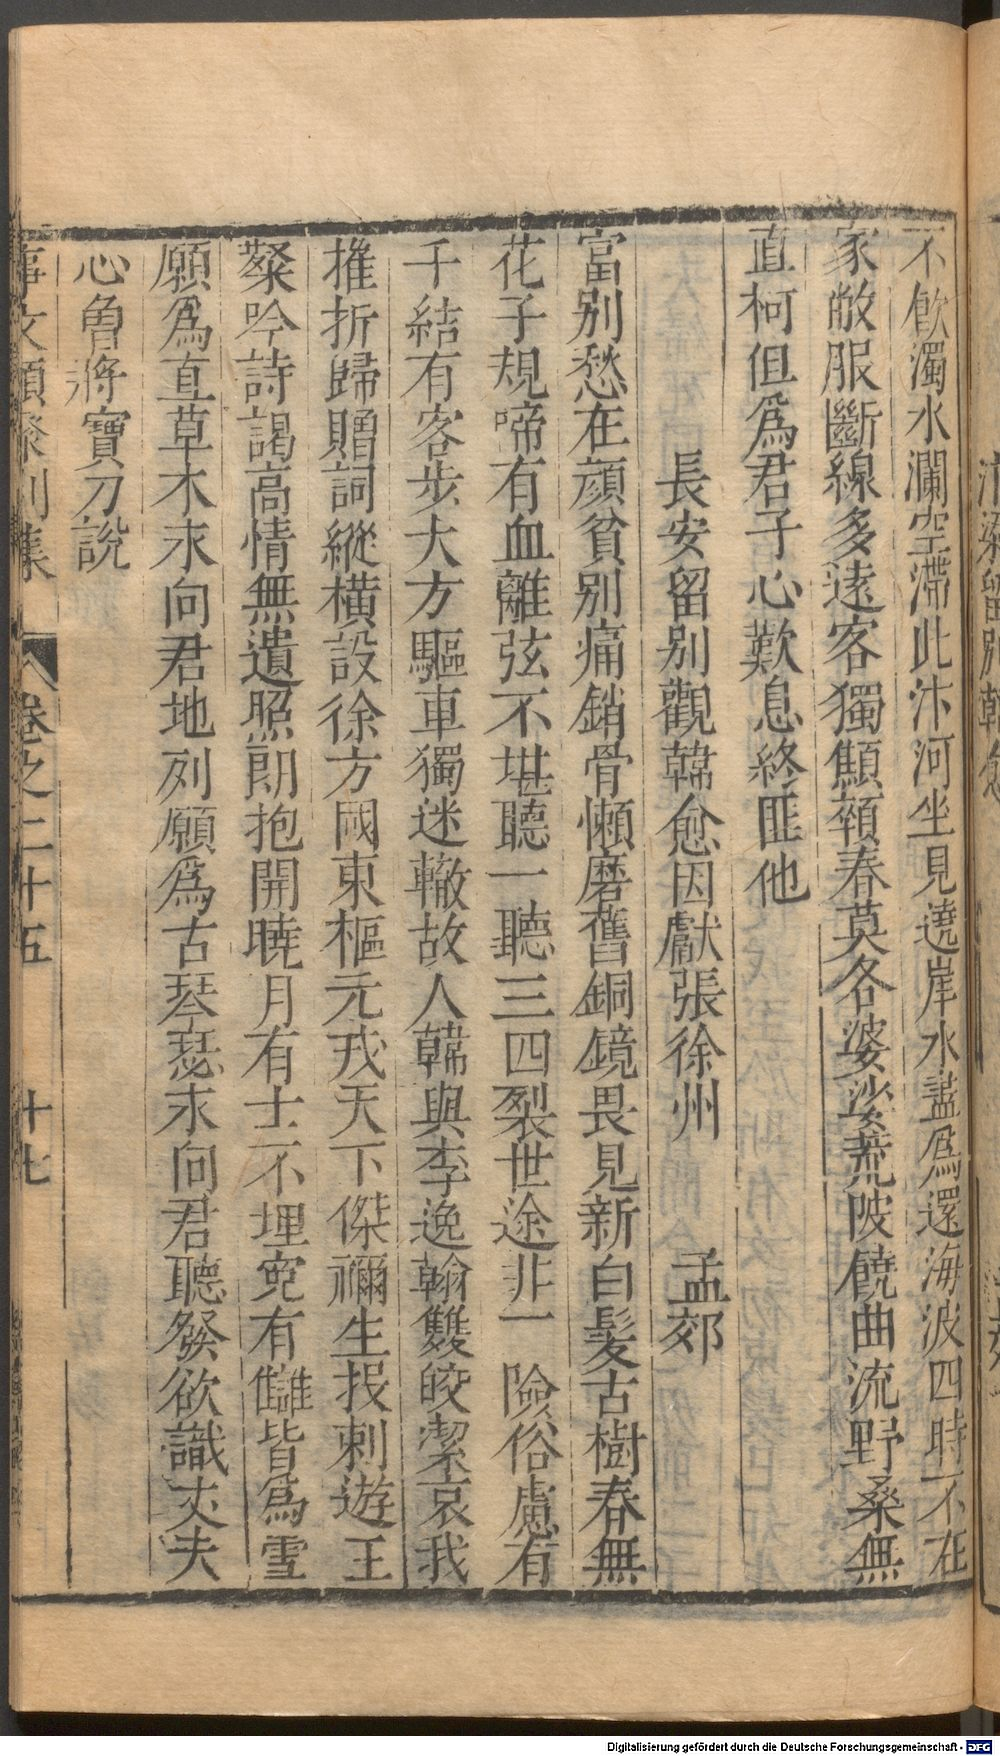 不飲濁水瀾空滯此汴河坐見遶岸水盡爲還海波四時不在
家敝服斷線多遠客獨顦顇春英各婆娑荒陂饒曲流野桑無
直柯但爲君子心歎息終匪他
長安留別觀韓愈因獻張徐州 孟郊
富别愁在顔貧别痛銷骨懶磨舊銅鏡畏見新白髪古樹春無
花子規啼有血離弦不堪聽一聽三四裂世途非一險俗慮有
千結有客步大方驅車獨迷轍故人韓與李逸翰雙皎潔哀我
摧折歸贈詞縱橫設徐方國東樞元戎天下傑禰生投刺遊王
粲吟詩謁高情無遺照朗抱開曉月有士不埋寃有讎皆爲雪
願爲直草木永向君地列願爲古琴瑟永向君聽發欲識丈夫
心曾將寶刀說
事文類聚別集 卷之二十五 十七
Digitalisierung gefördert durch die Deutsche Forschungsgemeinschaft - DFG